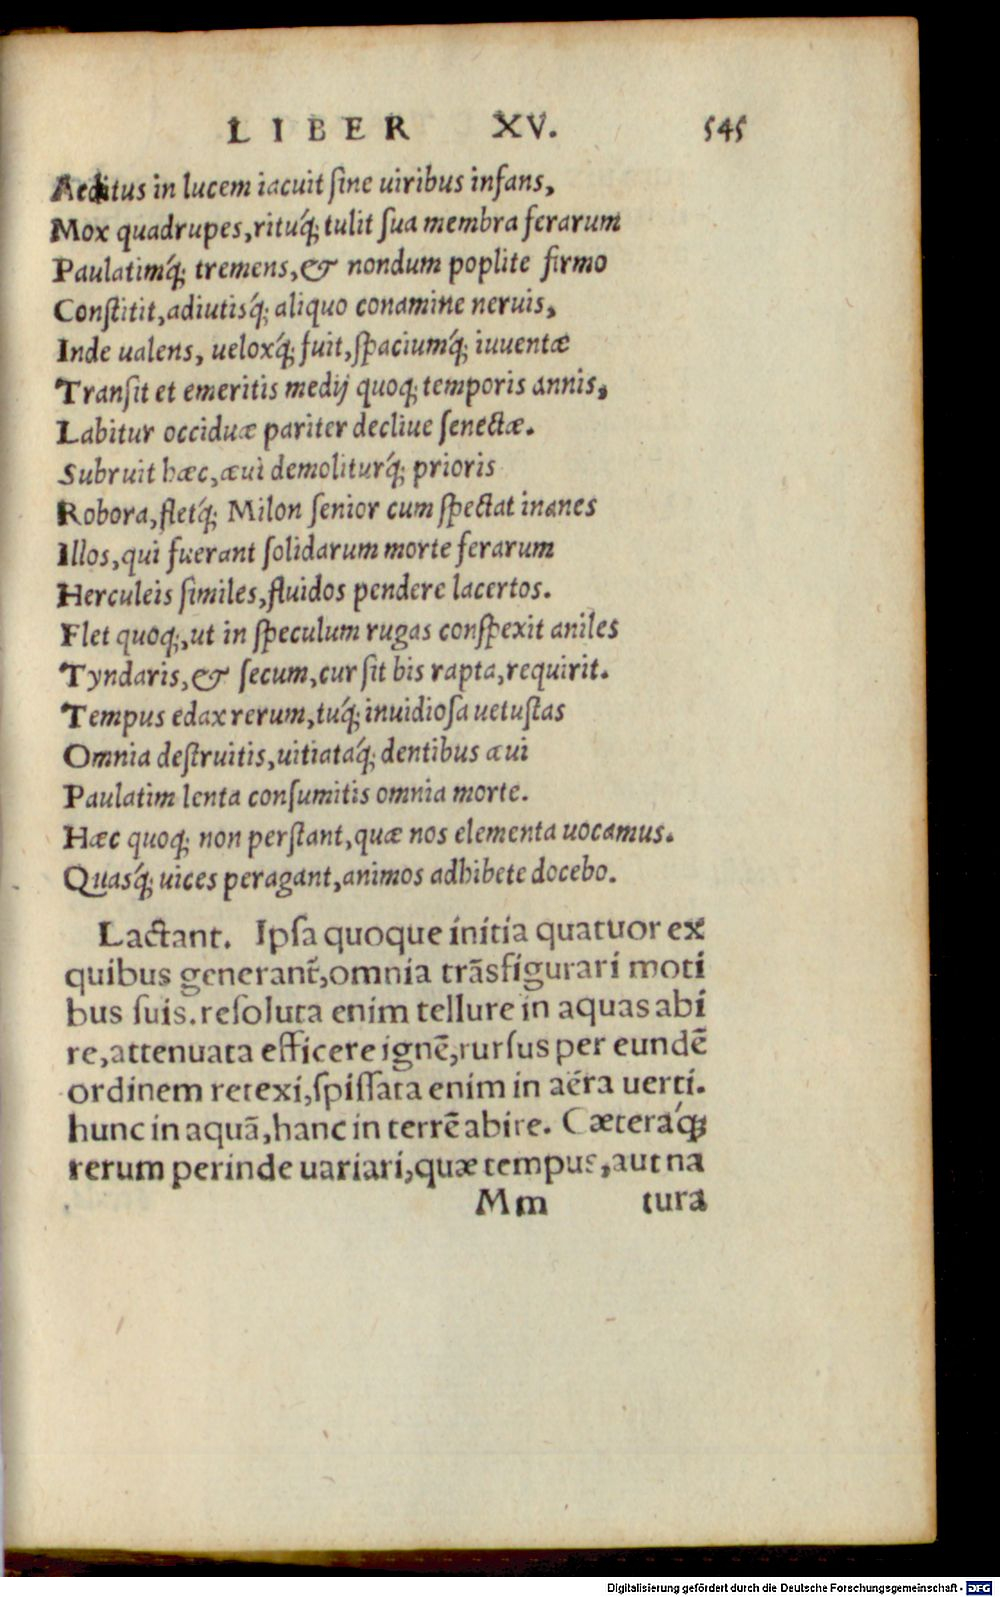 LIBER XV. 545
Aeditus in lucem iacuit ſine uiribus infans,
Mox quadrupes, rituq́; tulit ſua membra ferarum
Paulatimq́; tremens, & nondum poplite firmo
Conſtitit, adiutisq́; aliquo conamine neruis,
Inde ualens, ueloxq́; fuit, ſpaciumq́; iuuentæ
Tranſit et emeritis medij quoq; temporis annis,
Labitur occiduæ pariter decliue ſenectæ.
Subruit hæc, æui demoliturq́; prioris
Robora, fletq́; Milon ſenior cum ſpectat inanes
Illos, qui fuerant ſolidarum morte ferarum
Herculeis ſimiles, fluidos pendere lacertos.
Flet quoq;, ut in ſpeculum rugas conſpexit aniles
Tyndaris, & ſecum, cur ſit bis rapta, requirit.
Tempus edax rerum, tuq́; inuidioſa uetuſtas
Omnia deſtruitis, uitiataq́; dentibus æui
Paulatim lenta conſumitis omnia morte.
Hæc quoq; non perſtant, quæ nos elementa uocamus.
Quasq́; uices peragant, animos adhibete docebo.
Lactant. Ipſa quoque initia quatuor ex
quibus generant̃, omnia trãsfigurari moti
bus ſuis. reſoluta enim tellure in aquas abi
re, attenuata efficere ignẽ, rurſus per eundẽ
ordinem retexi, ſpiſſata enim in aëra uerti.
hunc in aquã, hanc in terrẽ abire. Cæteraq́;
rerum perinde uariari, quæ tempus, aut na
Mm tura
Digitalisierung gefördert durch die Deutsche Forschungsgemeinschaft - DFG